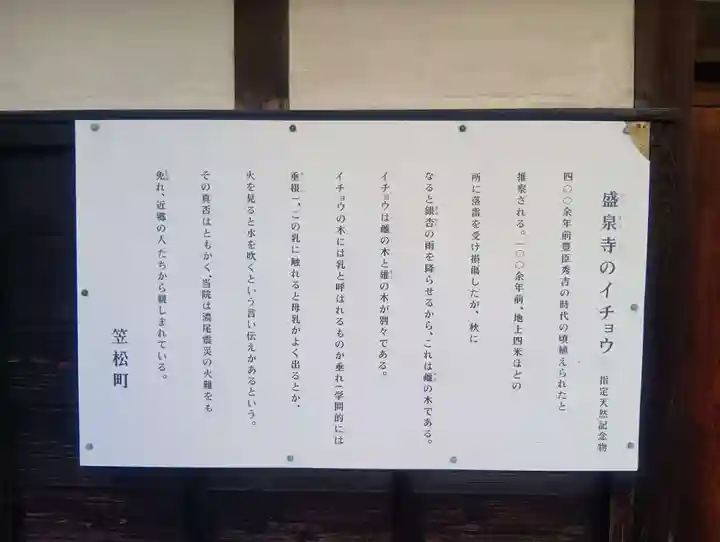 盛泉寺のイチョウ 指定天然記念物
四〇〇余年前豊臣秀吉の時代の頃植えられたと
推察される。一〇〇余年前、地上四米ほどの
所に落雷を受け損傷したが、秋に
なると銀杏の雨を降らせるから、これは雌の木である。
イチョウは雌の木と雄の木が別々である。
イチョウの木には乳と呼ばれるものが垂れ(学問的には
垂根)、この乳に触れると母乳がよく出るとか、
火を見ると水を吹くという言い伝えがあるという。
その真否はともかく、当院は濃尾震災の火難をも
免れ、近郷の人たちから親しまれている。
笠松町